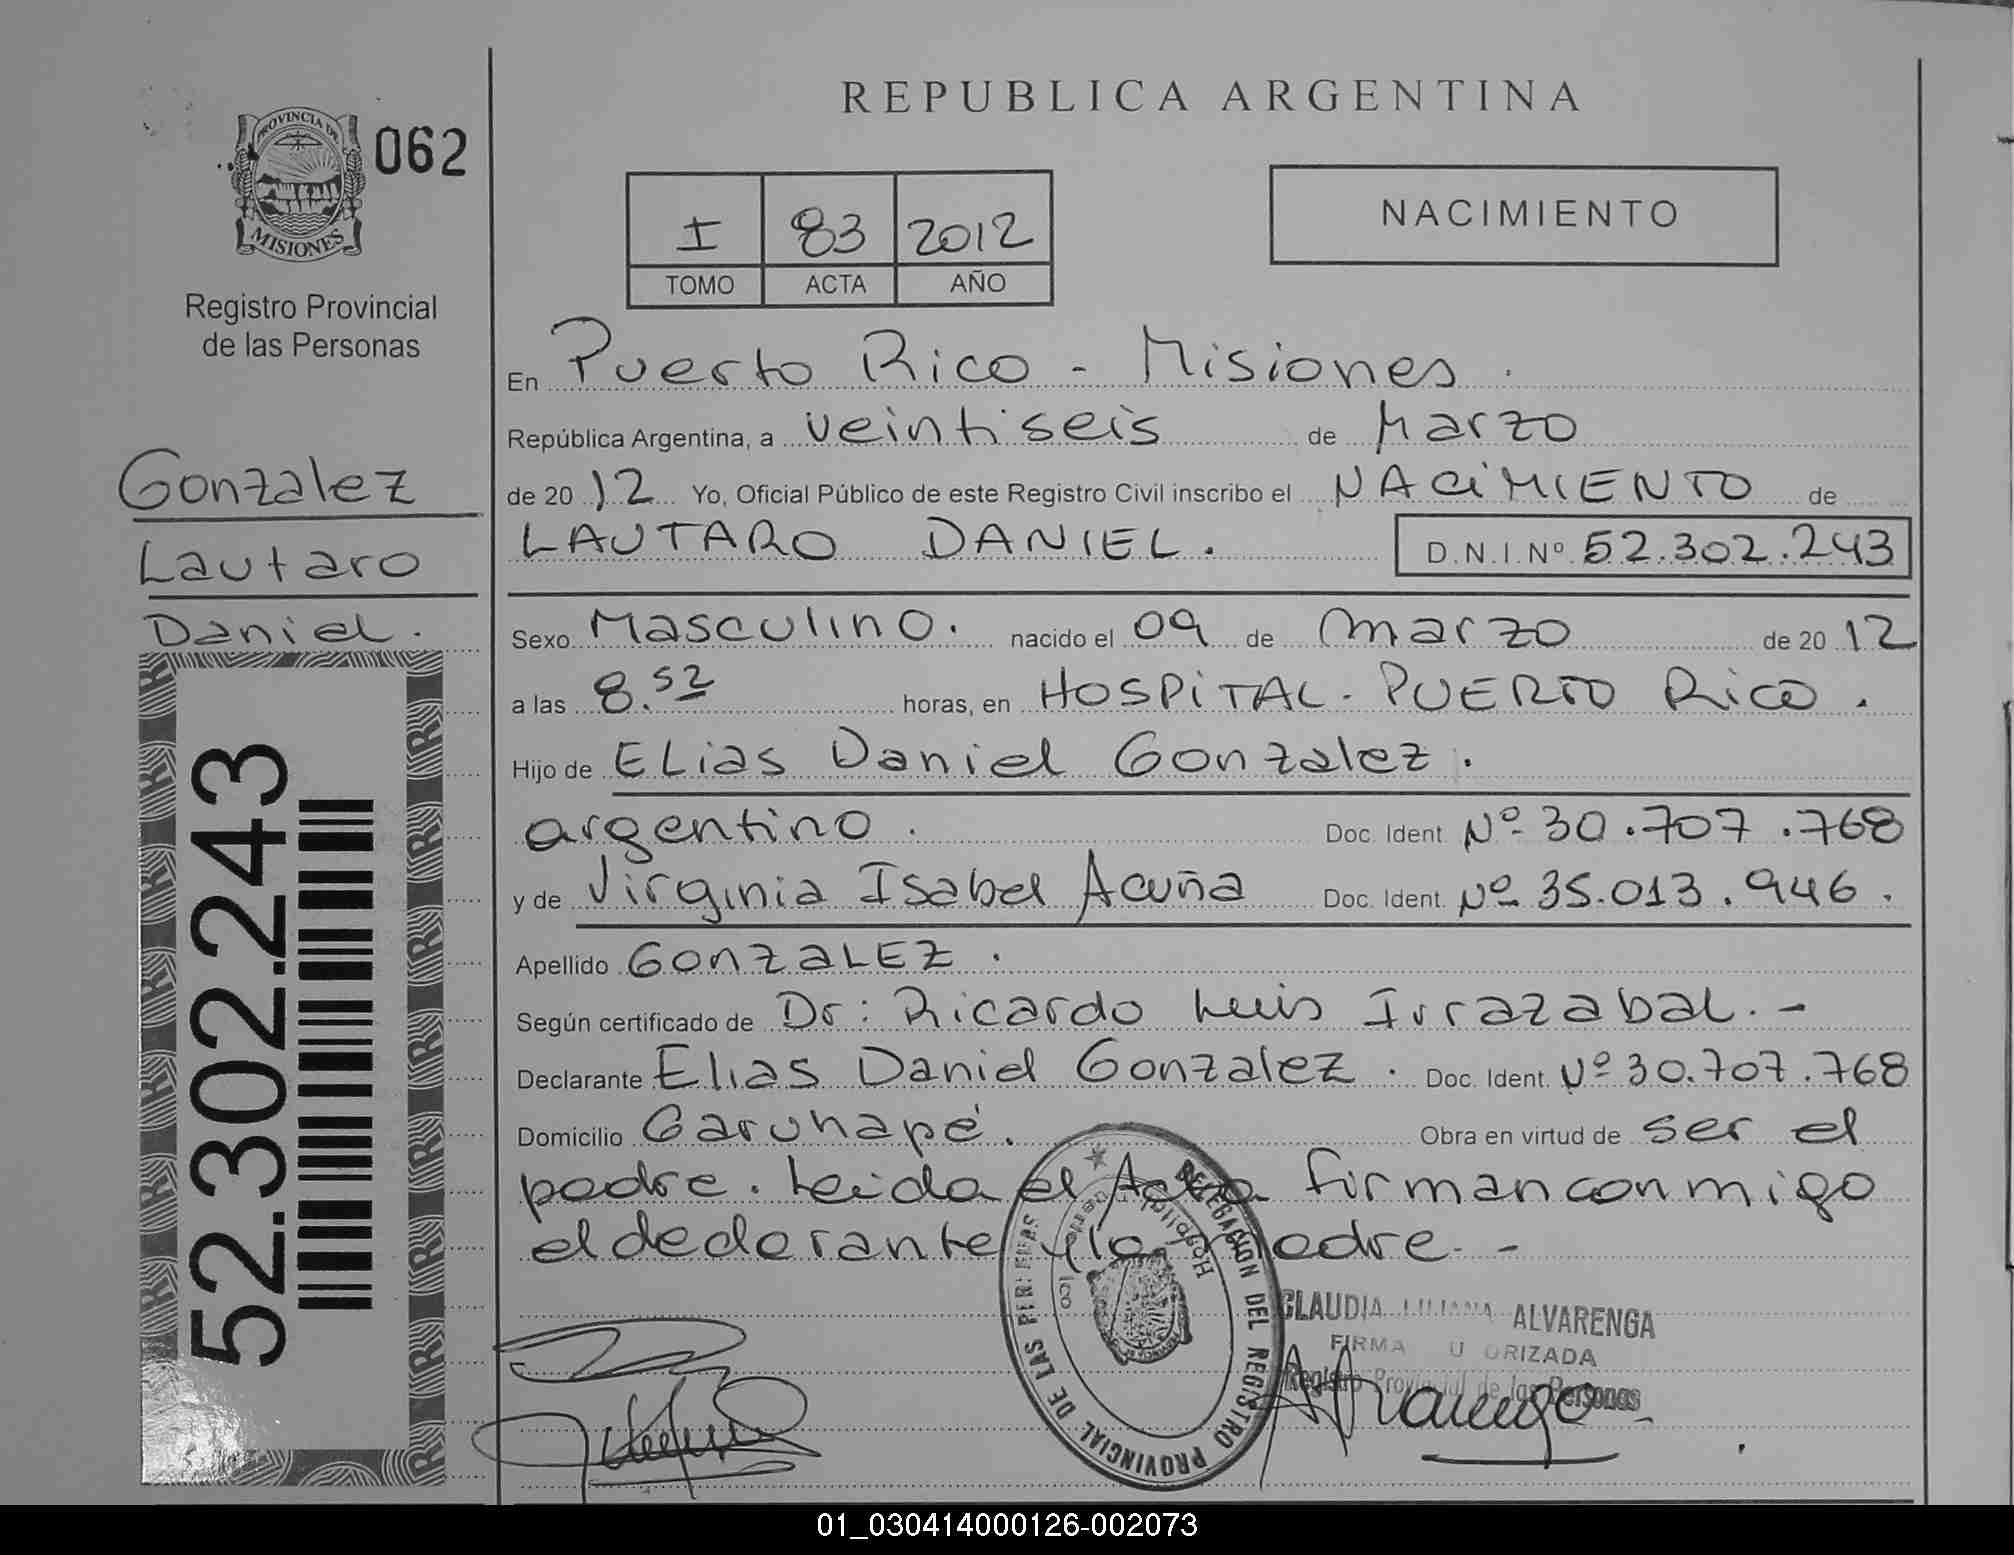 REPUBLICA ARGENTINA
PROVINCIA DE
MISIONES
062
Registro Provincial
de las Personas
I 83 2012
TOMO ACTA AÑO
NACIMIENTO
Gonzalez
Lautaro
Daniel.
52.302.243
En Puerto Rico - Misiones.
República Argentina, a veintiseis de Marzo
de 20 12 Yo, Oficial Público de este Registro Civil inscribo el NACIMIENTO de
LAUTARO DANIEL. D.N.I.Nº 52.302.243
Sexo Masculino. nacido el 09 de marzo de 20 12
a las 8.52 horas, en HOSPITAL - PUERTO RICO.
Hijo de Elias Daniel Gonzalez.
argentino. Doc. Ident Nº 30.707.768
y de Virginia Isabel Acuña Doc. Ident. Nº 35.013.946.
Apellido GONZALEZ.
Según certificado de Dr: Ricardo Luis Irrazabal. -
Declarante Elias Daniel Gonzalez. Doc. Ident. Nº 30.707.768
Domicilio Garuhapé. Obra en virtud de ser el
padre. Leida el Acta firman conmigo
el declarante y la madre. -
DELEGACION DEL REGISTRO PROVINCIAL DE LAS
Hospital
CLAUDIA LILIANA ALVARENGA
FIRMA
Registro Provincial de las Personas
01_030414000126-002073